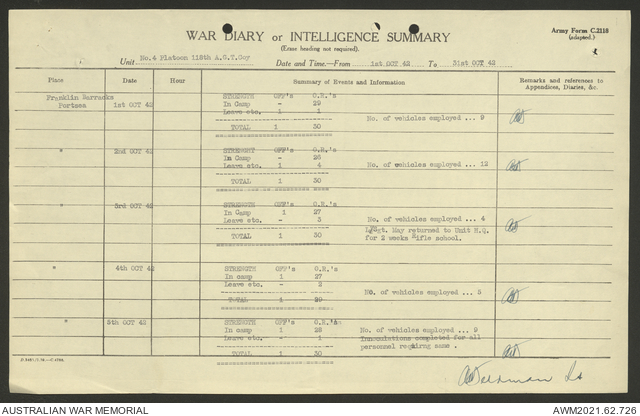 WAR DIARY or INTELLIGENCE SUMMARY
Army Form C.2118
(adapted.)
(Erase heading not required).
Unit No.4 Platoon 118th A.G.T.Coy Date and Time.—From 1st OCT 42 To 31st OCT 42
Place Date Hour Summary of Events and Information Remarks and references to
Appendices, Diaries, &c.
Franklin Barracks STRENGTH OFF's O.R.'s
Portsea 1st OCT 42 In Camp - 29
Leave etc. 1 1 No. of vehicles employed ... 9
TOTAL 1 30
" 2nd OCT 42 STRENGHT OFF's O.R.'s
In Camp - 26
Leave etc. 1 4 No. of vehicles employed ... 12
TOTAL 1 30
" 3rd OCT 42 STRENGTH OFF's O.R.'s
In Camp 1 27
Leave etc. - 3 No. of vehicles employed ... 4
TOTAL 1 30 L/Sgt. May returned to Unit H.Q.
for 2 weeks Rifle school.
" 4th OCT 42 STRENGTH OFF's O.R.'s
In camp 1 27
Leave etc. - 2 No. of vehicles employed ... 5
TOTAL 1 29
" 5th OCT 42 STRENGTH OFF's O.R.'s
In camp 1 28 No. of vehicles employed ... 9
Leave etc. - 1 Innoculations completed for all
personnel requiring same .
TOTAL 1 30
AUSTRALIAN WAR MEMORIAL AWM2021.62.726